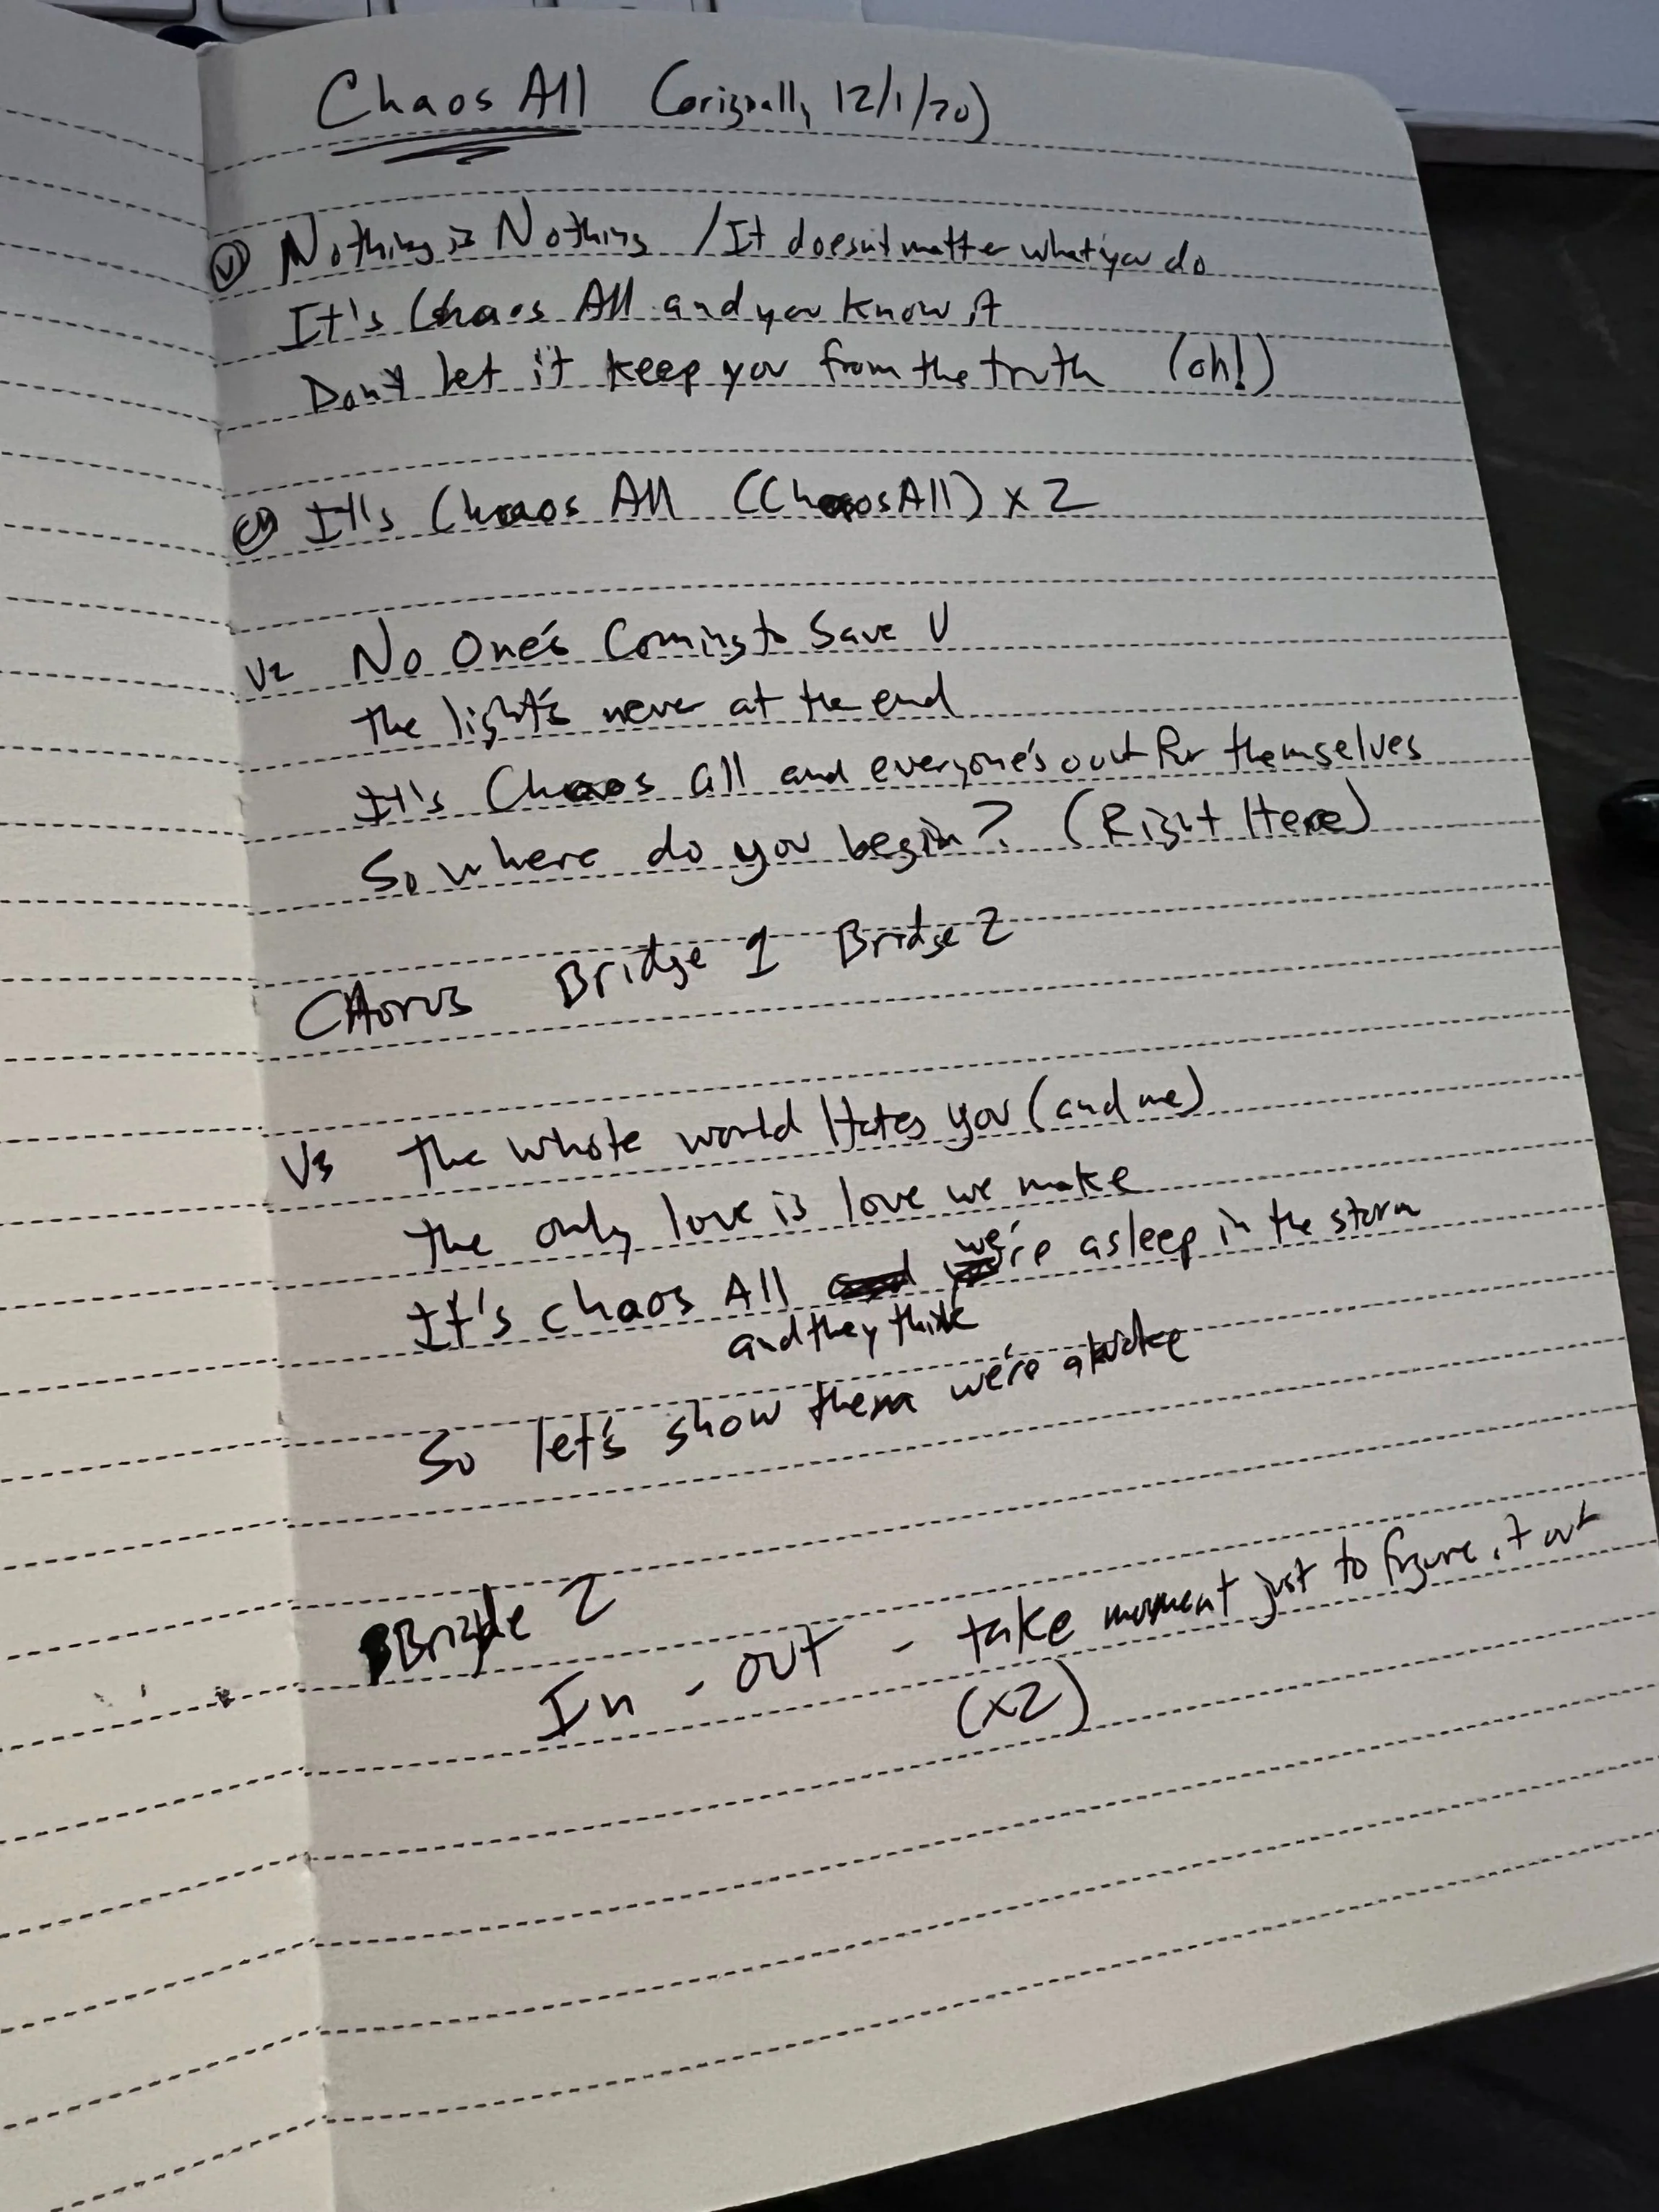 Chaos All (originally 12/1/20)
V1 Nothing is Nothing / It doesn't matter what you do
It's Chaos All and you know it
Don't let it keep you from the truth (oh!)
CH It's Chaos All (Chaos All) x 2
V2 No One's Coming to Save U
The light's never at the end
It's Chaos all and everyone's out for themselves
So where do you begin? (Right Here)
CHorus Bridge 1 Bridge 2
V3 The whole world Hates you (and me)
The only love is love we make
It's chaos All and we're asleep in the storm
and they think
So let's show them we're awake
Bridge 2
In - out - take moment just to figure it out
(x2)